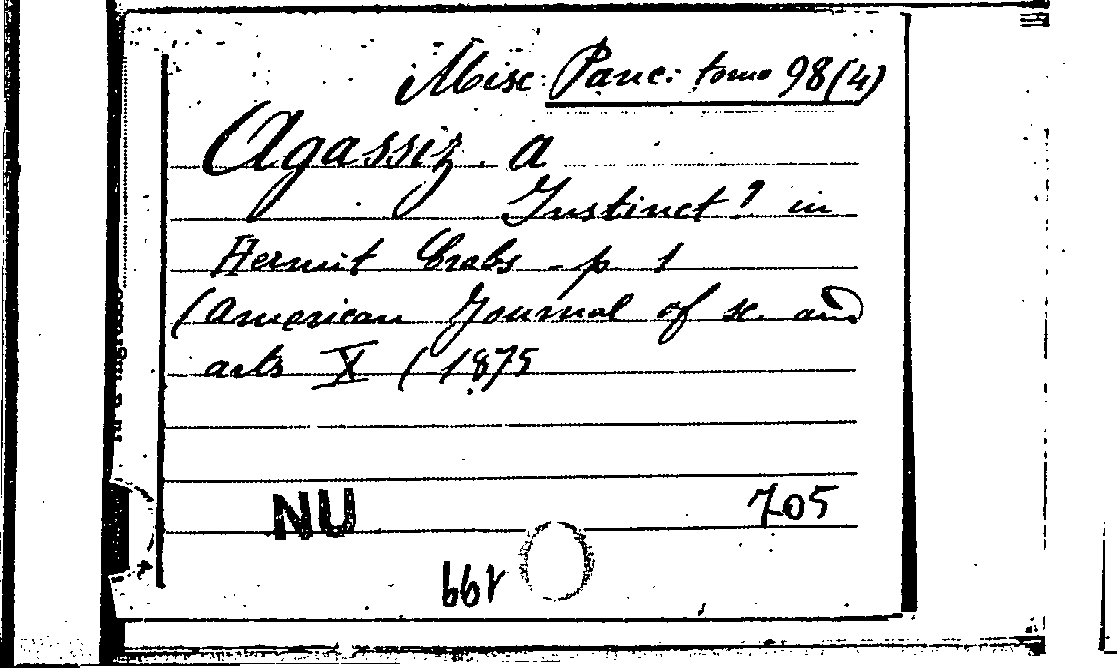 Misc. Panc: tomo 98(4)
Agassiz. A
Instinct? in
Hermit Crabs - p 1
(American Journal of sc. and
arts X (1875
NU
705
199